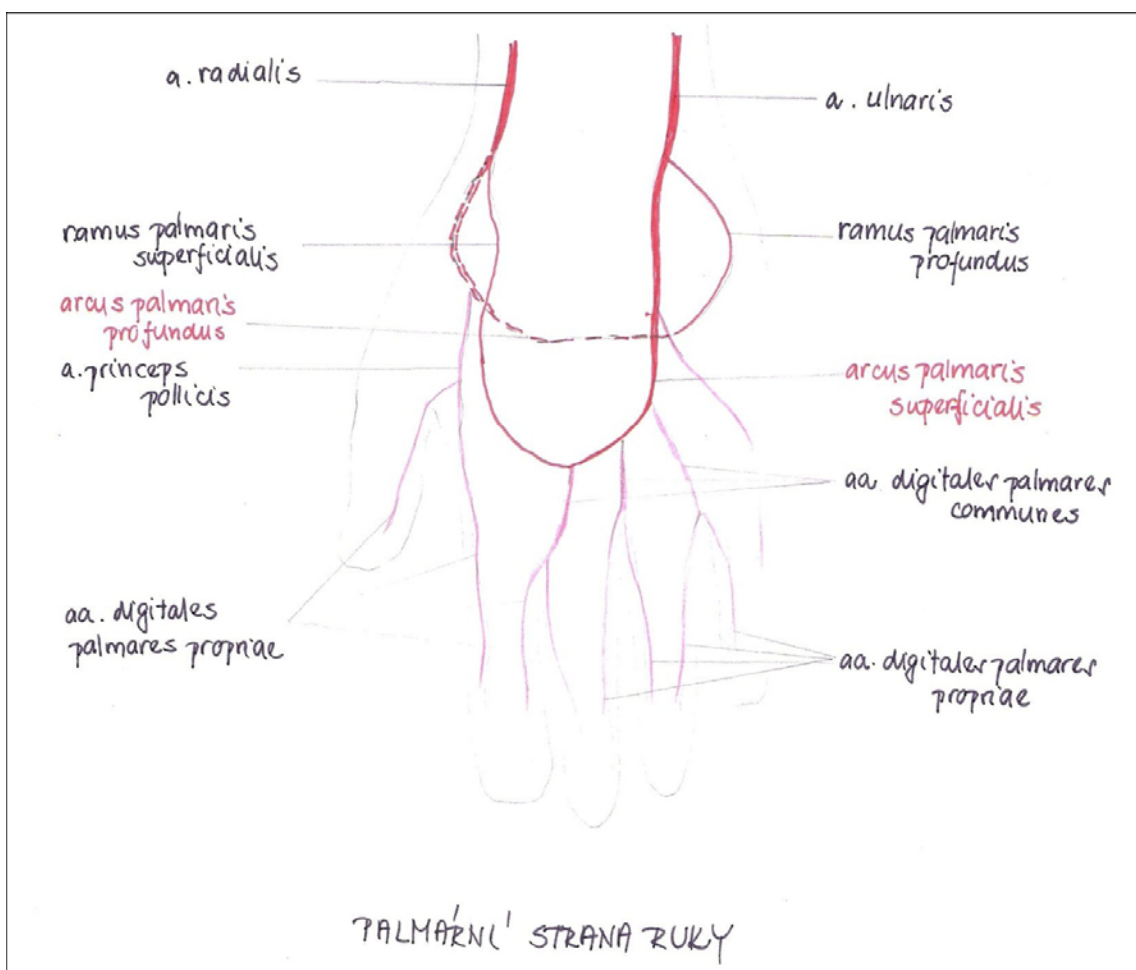 a. radialis
a. ulnaris
ramus palmaris
superficialis
ramus palmaris
profundus
arcus palmaris
profundus
a. princeps
pollicis
arcus palmaris
superficialis
aa digitales palmares
communes
aa. digitales
palmares propriae
aa. digitales palmares
propriae
PALMÁRNÍ STRANA RUKY